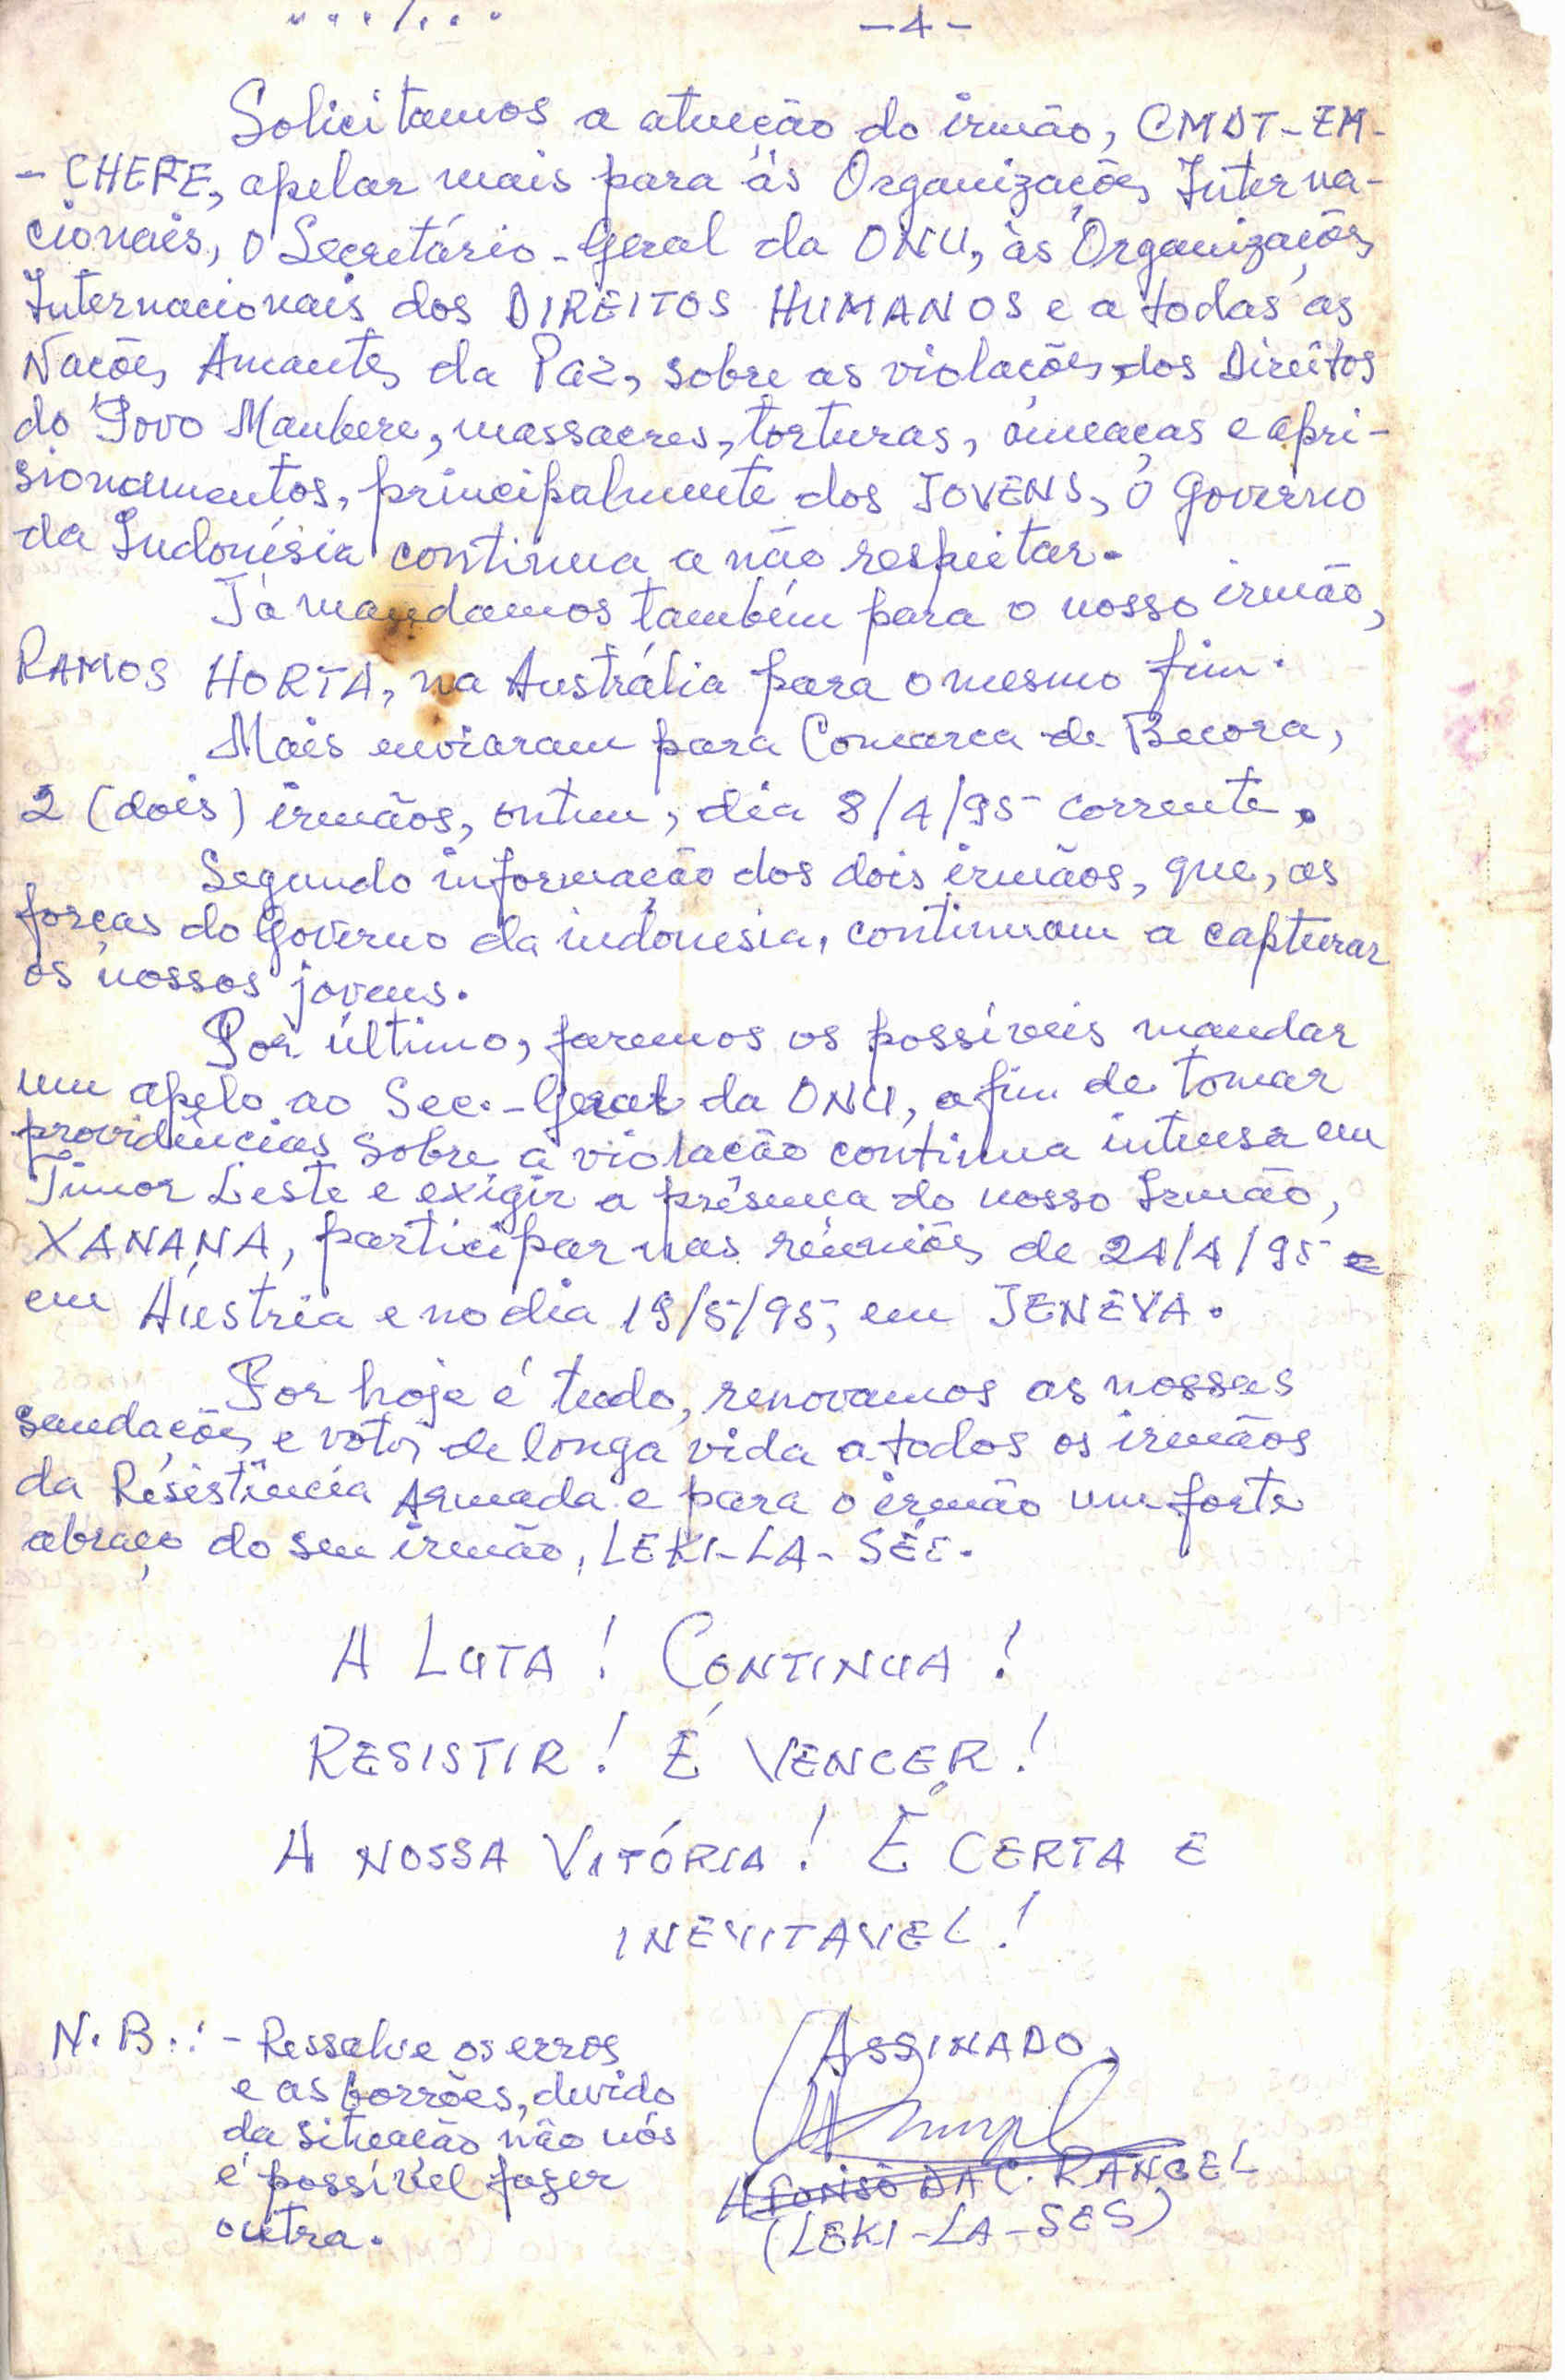 .../...   -4-
Solicitamos a atuação do irmão, CMDT-EM-
- CHEFE, apelar mais para às Organizações Interna-
cionais, o Secretário-Geral da ONU, às Organizações
Internacionais dos DIREITOS HUMANOS e a todas as
Nações Amantes da Paz, sobre as violações, dos Direitos
do Povo Maubere, massacres, torturas, ameaças e apri-
sionamentos, principalmente dos JOVENS, o Governo
da Indonésia continua a não respeitar.
Já mandamos também para o nosso irmão,
RAMOS HORTA, na Austrália para o mesmo fim.
Mais enviaram para Comarca de Becora,
2 (dois) irmãos, ontem, dia 8/4/95 corrente.
Segundo informação dos dois irmãos, que, as
forças do Governo da indonesia, continuam a capturar
os nossos jovens.
Por último, faremos os possíveis mandar
um apelo ao Sec.-Geral da ONU, afim de tomar
providências sobre a violação continua intensa em
Timor Leste e exigir a présença do nosso Irmão,
XANANA, participar nas réuniões de 24/4/95 e
em Áustria e no dia 19/5/95, em JENEVA.
Por hoje é tudo, renovamos as nossas
saudações e votos de longa vida a todos os irmãos
da Résistência Armada e para o irmão um forte
abraço do seu irmão, LEKI-LA-SÉS.
A LUTA! CONTINUA!
RESISTIR! É VENCER!
A NOSSA VITÓRIA! É CERTA E
INEVITAVEL!
N.B.: - Ressalve os erros
e as borrões, devido
da situação não nós
é possível fazer
outra.
ASSINADO,
AFONSO DA C. RANGEL
(LEKI-LA-SES)